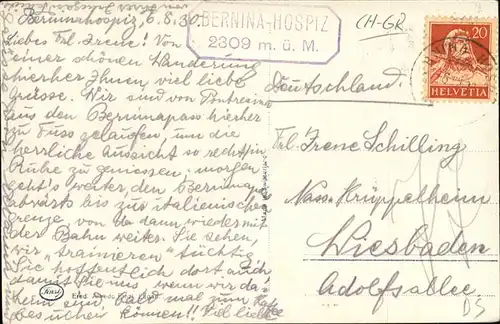 Berninahospiz, 6.8.30.
Liebes Frl. Irene! Von
einer schönen Wanderung
hierher Ihnen viel liebe
Grüsse. Wir sind von Pontresina
aus den Berninapass hierher
zu Fuss gelaufen, um die
herrliche Aussicht so recht in
Ruhe zu geniessen. morgen
geht's weiter, den Berninapass
abwärts bis zur italienischen
Grenze, von da dann wieder mit
der Bahn weiter. Sie sehen,
wir "trainieren" tüchtig
Sie hoffentlich dort auch
damit Sie uns, wenn wir da-
heim sind, bald mal zum Kaffee
besuchen können!! Viel liebe
BERNINA-HOSPIZ
2309 m. ü. M.
CH-GR
20
HELVETIA
Deutschland.
Frl. Irene Schilling
Nass. Krüppelheim
Wiesbaden
Adolfsallee